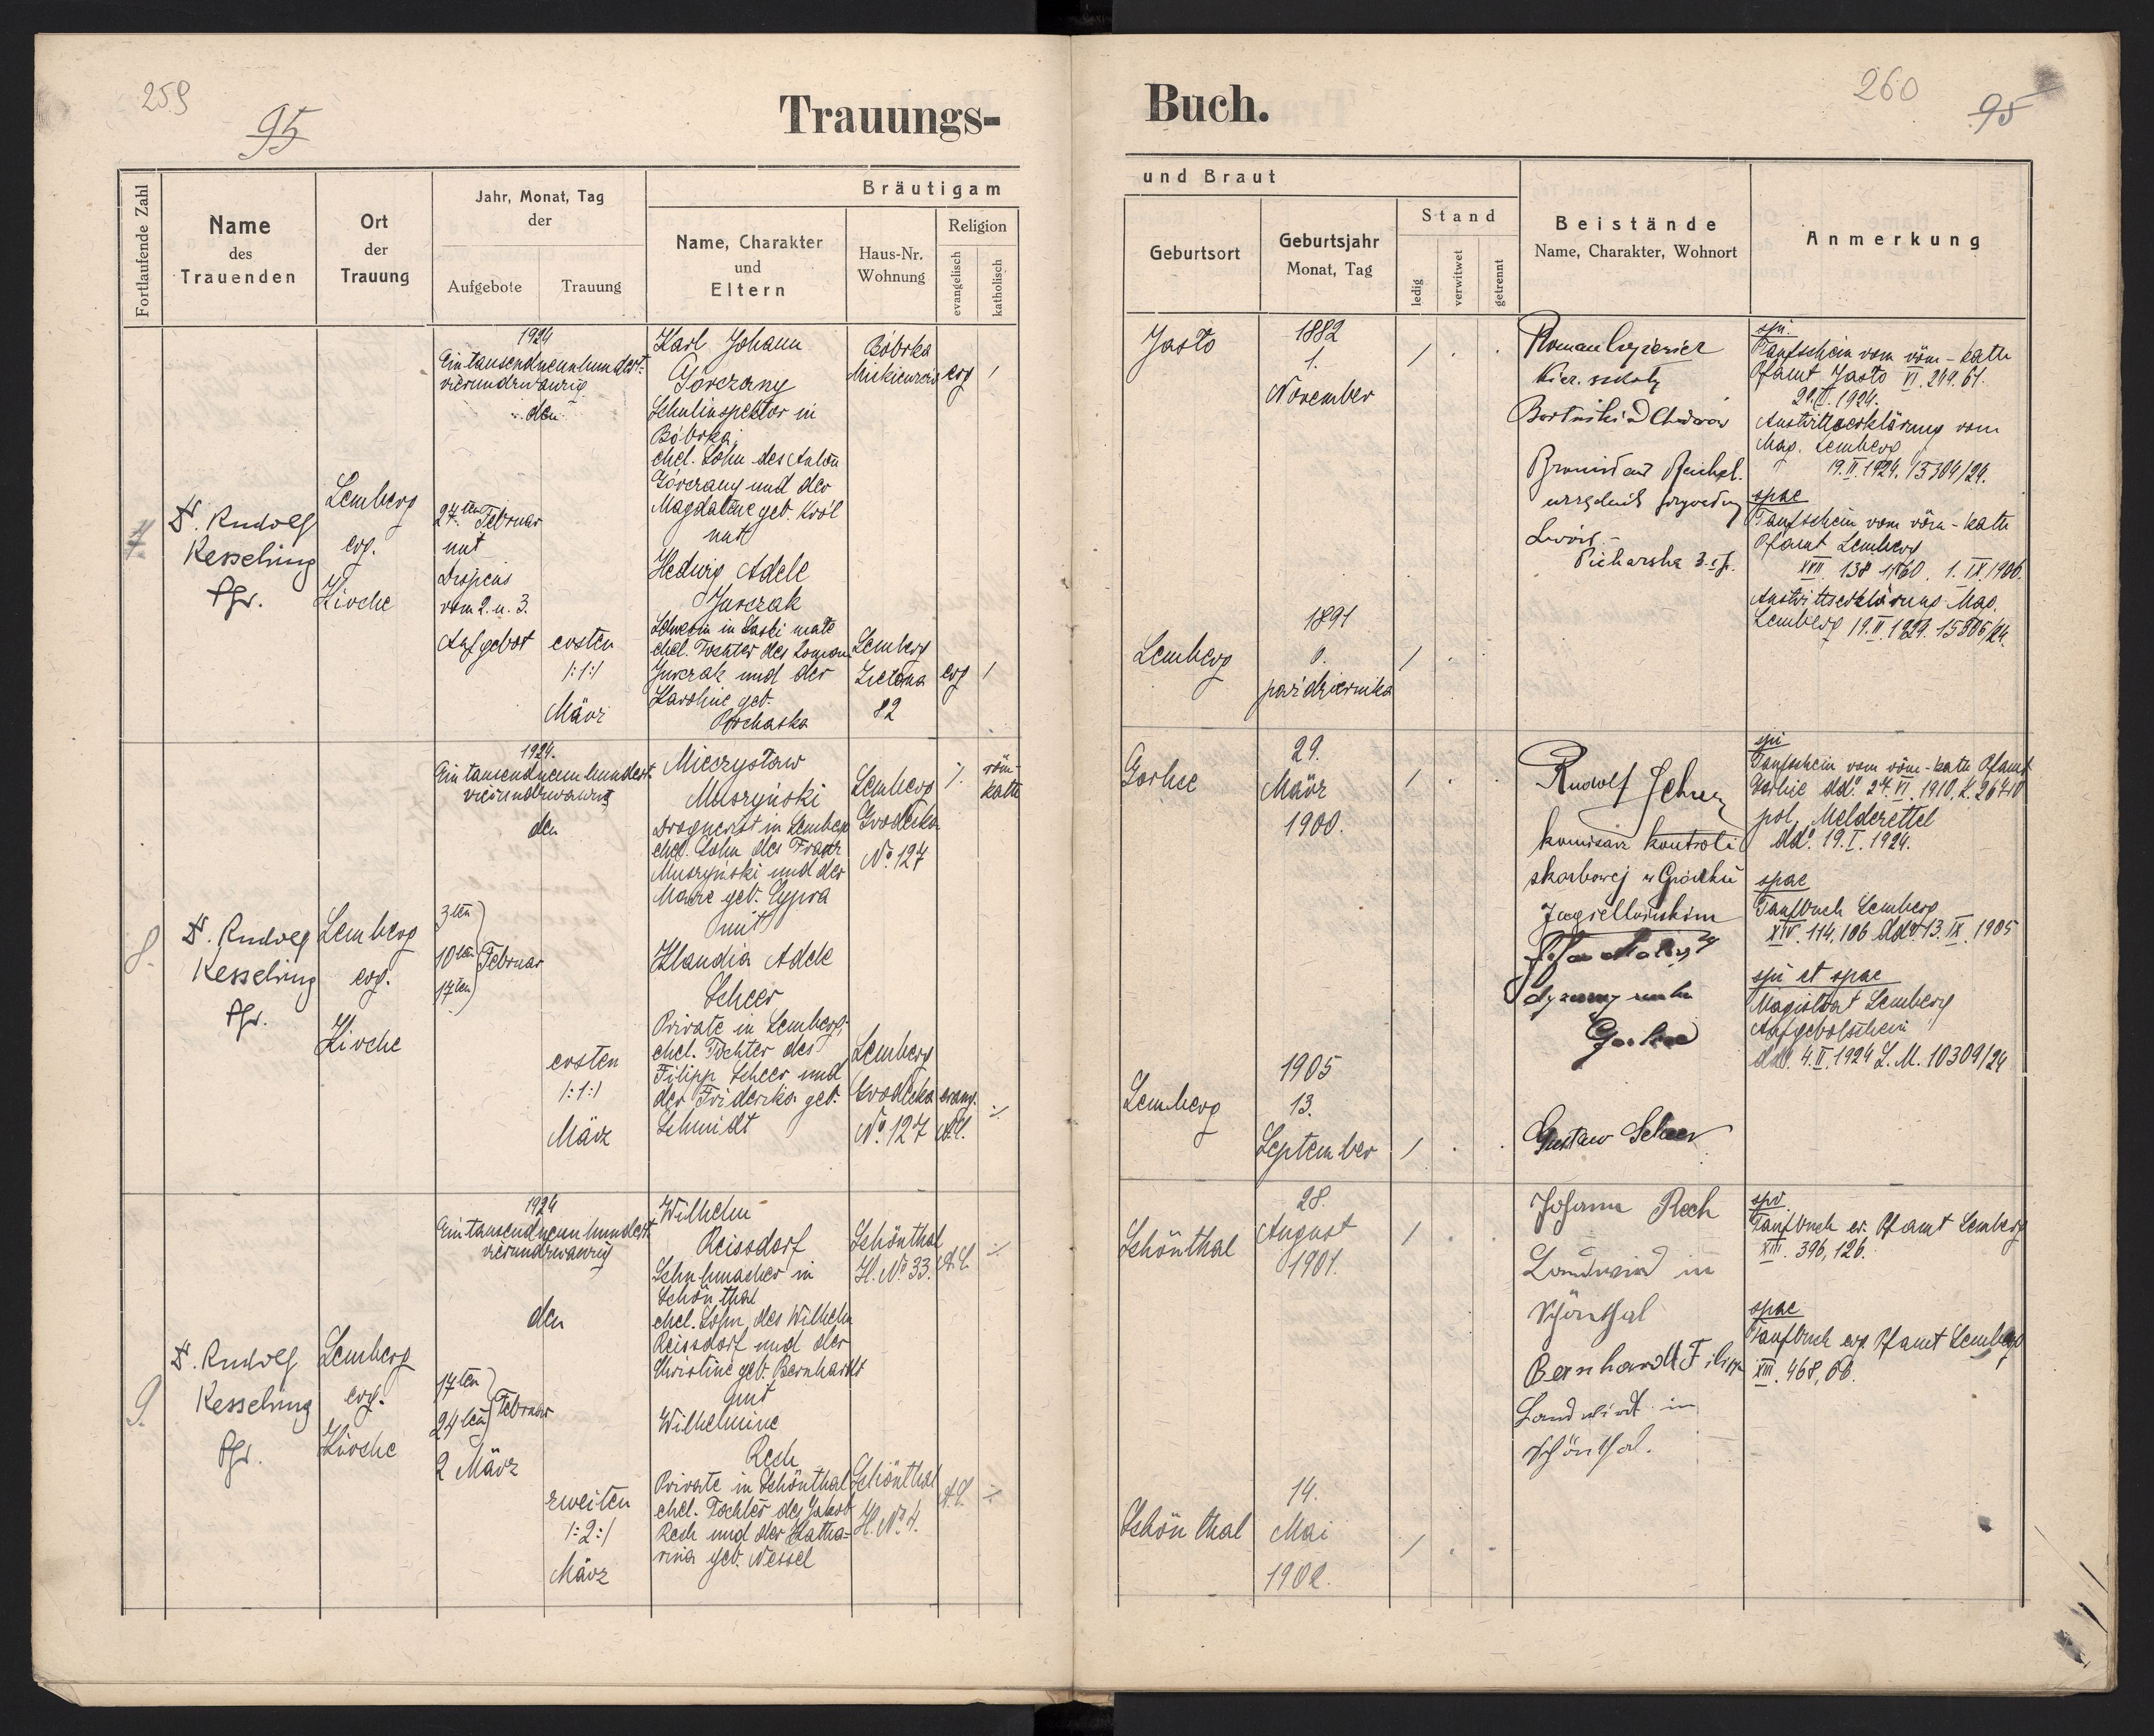 259
95
Trauungs-
Fortlaufende Zahl
Name
des
Trauenden
Ort
der
Trauung
Jahr, Monat, Tag
der
Aufgebote
Trauung
Bräutigam
Name, Charakter
und
Eltern
Haus-Nr.
Wohnung
Religion
evangelisch
katholisch
7.
D. Rudolf
Kesselring
Pfr.
Lemberg
evg.
Kirche
1924
Eintausendneunhundert-
vierundzwanzig
den
27ten Februar
mit
Dispens
vom 2. u. 3.
Aufgebot
ersten
/:1:/
März
Karl Johann
Gorczany
Schulinspektor in
Bóbrka
ehel. Sohn des Anton
Gorczany und der
Magdalene geb. Król
mit
Hedwig Adele
Jurczak
ehel. Tochter des Roman
Jurczak und der
Karoline geb.
Prochaska
Bóbrka
evg /
Lemberg
Zielona
82
evg /
8.
D. Rudolf
Kesselring
Pfr.
Lemberg
evg.
Kirche
1924.
Eintausendneunhundert
vierundzwanzig
den
3ten
10ten Februar
17ten
ersten
/:1:/
März
Mieczysław
Muszyński
Drogueist in Lemberg
ehel. Sohn des Franz
Muszyński und der
Marie geb. Cypra
mit
Klaudia Adele
Scheer
Private in Lemberg,
ehel. Tochter des
Filipp Scheer und
der Friderika geb.
Schmidt
Lemberg
Grodecka
No. 127
röm-
kath
Lemberg
Grodecka
No. 127
evang.
A.C.
9.
D. Rudolf
Kesselring
Pfr.
Lemberg
evg.
Kirche
1924
Eintausendneunhundert
vierundzwanzig
den
17ten
24ten Februar
2 März
zweiten
/:2:/
März
Wilhelm
Reissdorf
Schuhmacher in
Schönthal
ehel. Sohn des Wilhelm
Reissdorf und der
Christine geb. Bernhardt
mit
Wilhelmine
Rech
Private in Schönthal
ehel. Tochter des Jakob
Rech und der Katha-
rina geb. Nessel
Schönthal
H. No 33.
A.C.
Schönthal
H. No 4.
A.C.
260
95
Buch.
und Braut
Geburtsort
Geburtsjahr
Monat, Tag
Stand
ledig
verwitwet
getrennt
Beistände
Name, Charakter, Wohnort
Anmerkung
Jasło
1882
1.
November
/
Lemberg
1891
października
/
Roman
Kier. szkoły
Lwów
spi.
Taufschein vom röm-kath
Pfamt Jasło VI. 249. 61.
1924.
Austrittserklärung vom
Mag. Lemberg
19.II.1924. 15304/24.
spae
Taufschein vom röm-kath
Pfamt Lemberg
1. IX. 1906.
Austrittserklärung Mag.
Lemberg 19.II.1924. 15306/24.
Gorlice
29.
März
1900.
/
Lemberg
1905
13.
September
/
Rudolf
komisarz kontroli
skarbowej w Gródku
Jagiellońskim
Gustaw Scheer
spi
Taufschein vom röm-kath Pfamt
Gorlice ddo. 27. VI. 1910, L. 26710
pol. Meldezettel
ddo. 19. I. 1924.
spae
Taufbuch Lemberg
XIV. 114, 106 ddo. 13. IX. 1905
spi et spae
Magistrat Lemberg
Aufgebotschein
ddo. 4.II.1924 L. M. 10309/24
Schönthal
28.
August
1901.
/
Schönthal
14.
Mai
1902.
/
Johann Rech
Landwirt in
Schönthal
Bernhardt Filipp
Landwirt in
Schönthal.
spi.
Taufbuch ev. Pfamt Lemberg
XIII. 396, 126.
spae
Taufbuch evg. Pfamt Lemberg
XIII. 468, 66.